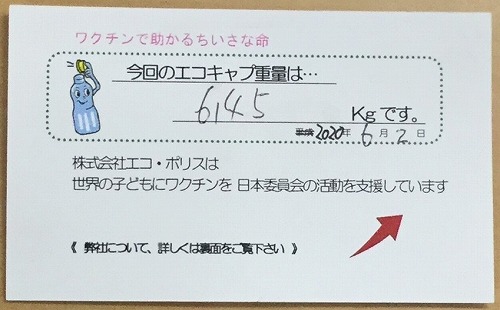 ワクチンで助かるちいさな命
今回のエコキャプ重量は…
6,145 Kgです。
平成2020年 6月2日
株式会社エコ・ポリスは
世界の子どもにワクチンを 日本委員会の活動を支援しています
《 弊社について、詳しくは裏面をご覧下さい 》